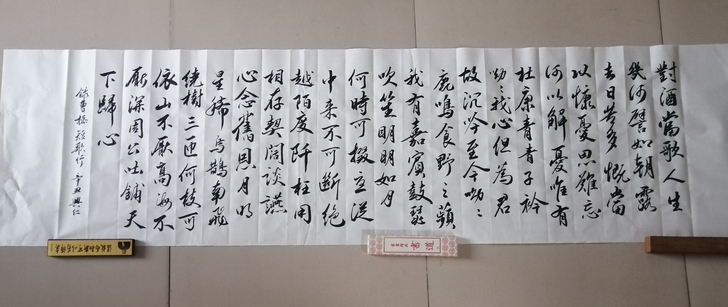 對酒當歌人生
幾何譬如朝露
去日苦多慨當
以慷憂思難忘
何以解憂唯有
杜康青青子衿
呦〻我心但為君
故沉吟至今呦〻
鹿鳴食野之蘋
我有嘉賓鼓瑟
吹笙明明如月
何時可掇憂從
中来不可斷绝
越陌度阡枉用
相存契阔談讌
心念舊恩月明
星稀烏鵲南飛
繞樹三匝何枝可
依山不厭高海不
厭深周公吐鋪天
下歸心
錄曹操短歌行辛丑興仁